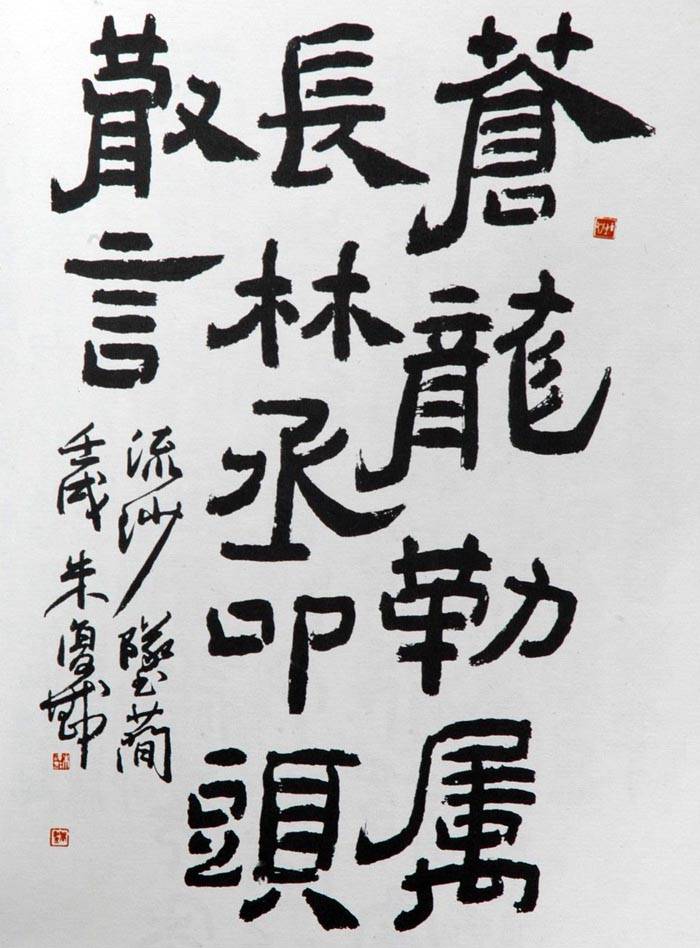 蒼龍勒属
長林丞叩頭
散言
流沙墜簡
壬戌 朱復戡